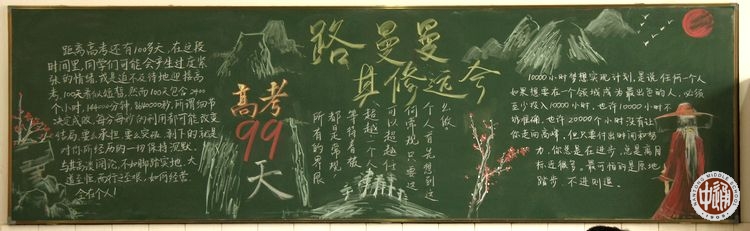 路曼曼
其修远兮
距离高考还有100多天，在这段
时间里，同学们可能会产生过度紧
张的情绪，或是迫不及待地迎接高
考，100天看似短暂，然而100天包含2400
个小时，144000分钟，8640000秒，所谓细节
决定成败，每分每秒的利用都可能改变
结局。要么承担，要么突破，剩下的就是
对你所经历的一切保持沉默。
与其高谈阔论，不如脚踏实地，大
道至简，而行之至艰，如何经营，
全在个人！
高考
99
天
么做。
个人首先想到这
何常规，只要这
可以超越任
（超越一个人人
等待着被
都是常规
所有的界限
10000小时梦想实现计划，是说任何一个人
如果想要在一个领域成为最出色的人，必须
至少投入10000小时，也许10000小时不
够准确，也许20000个小时没有让
你走向高峰，但只要付出时间和努
力，你总是在进步，总是离目
标近很多。最可怕的是原地
踏步，不进则退。
中通
MIDDLE SCHOOL
1909